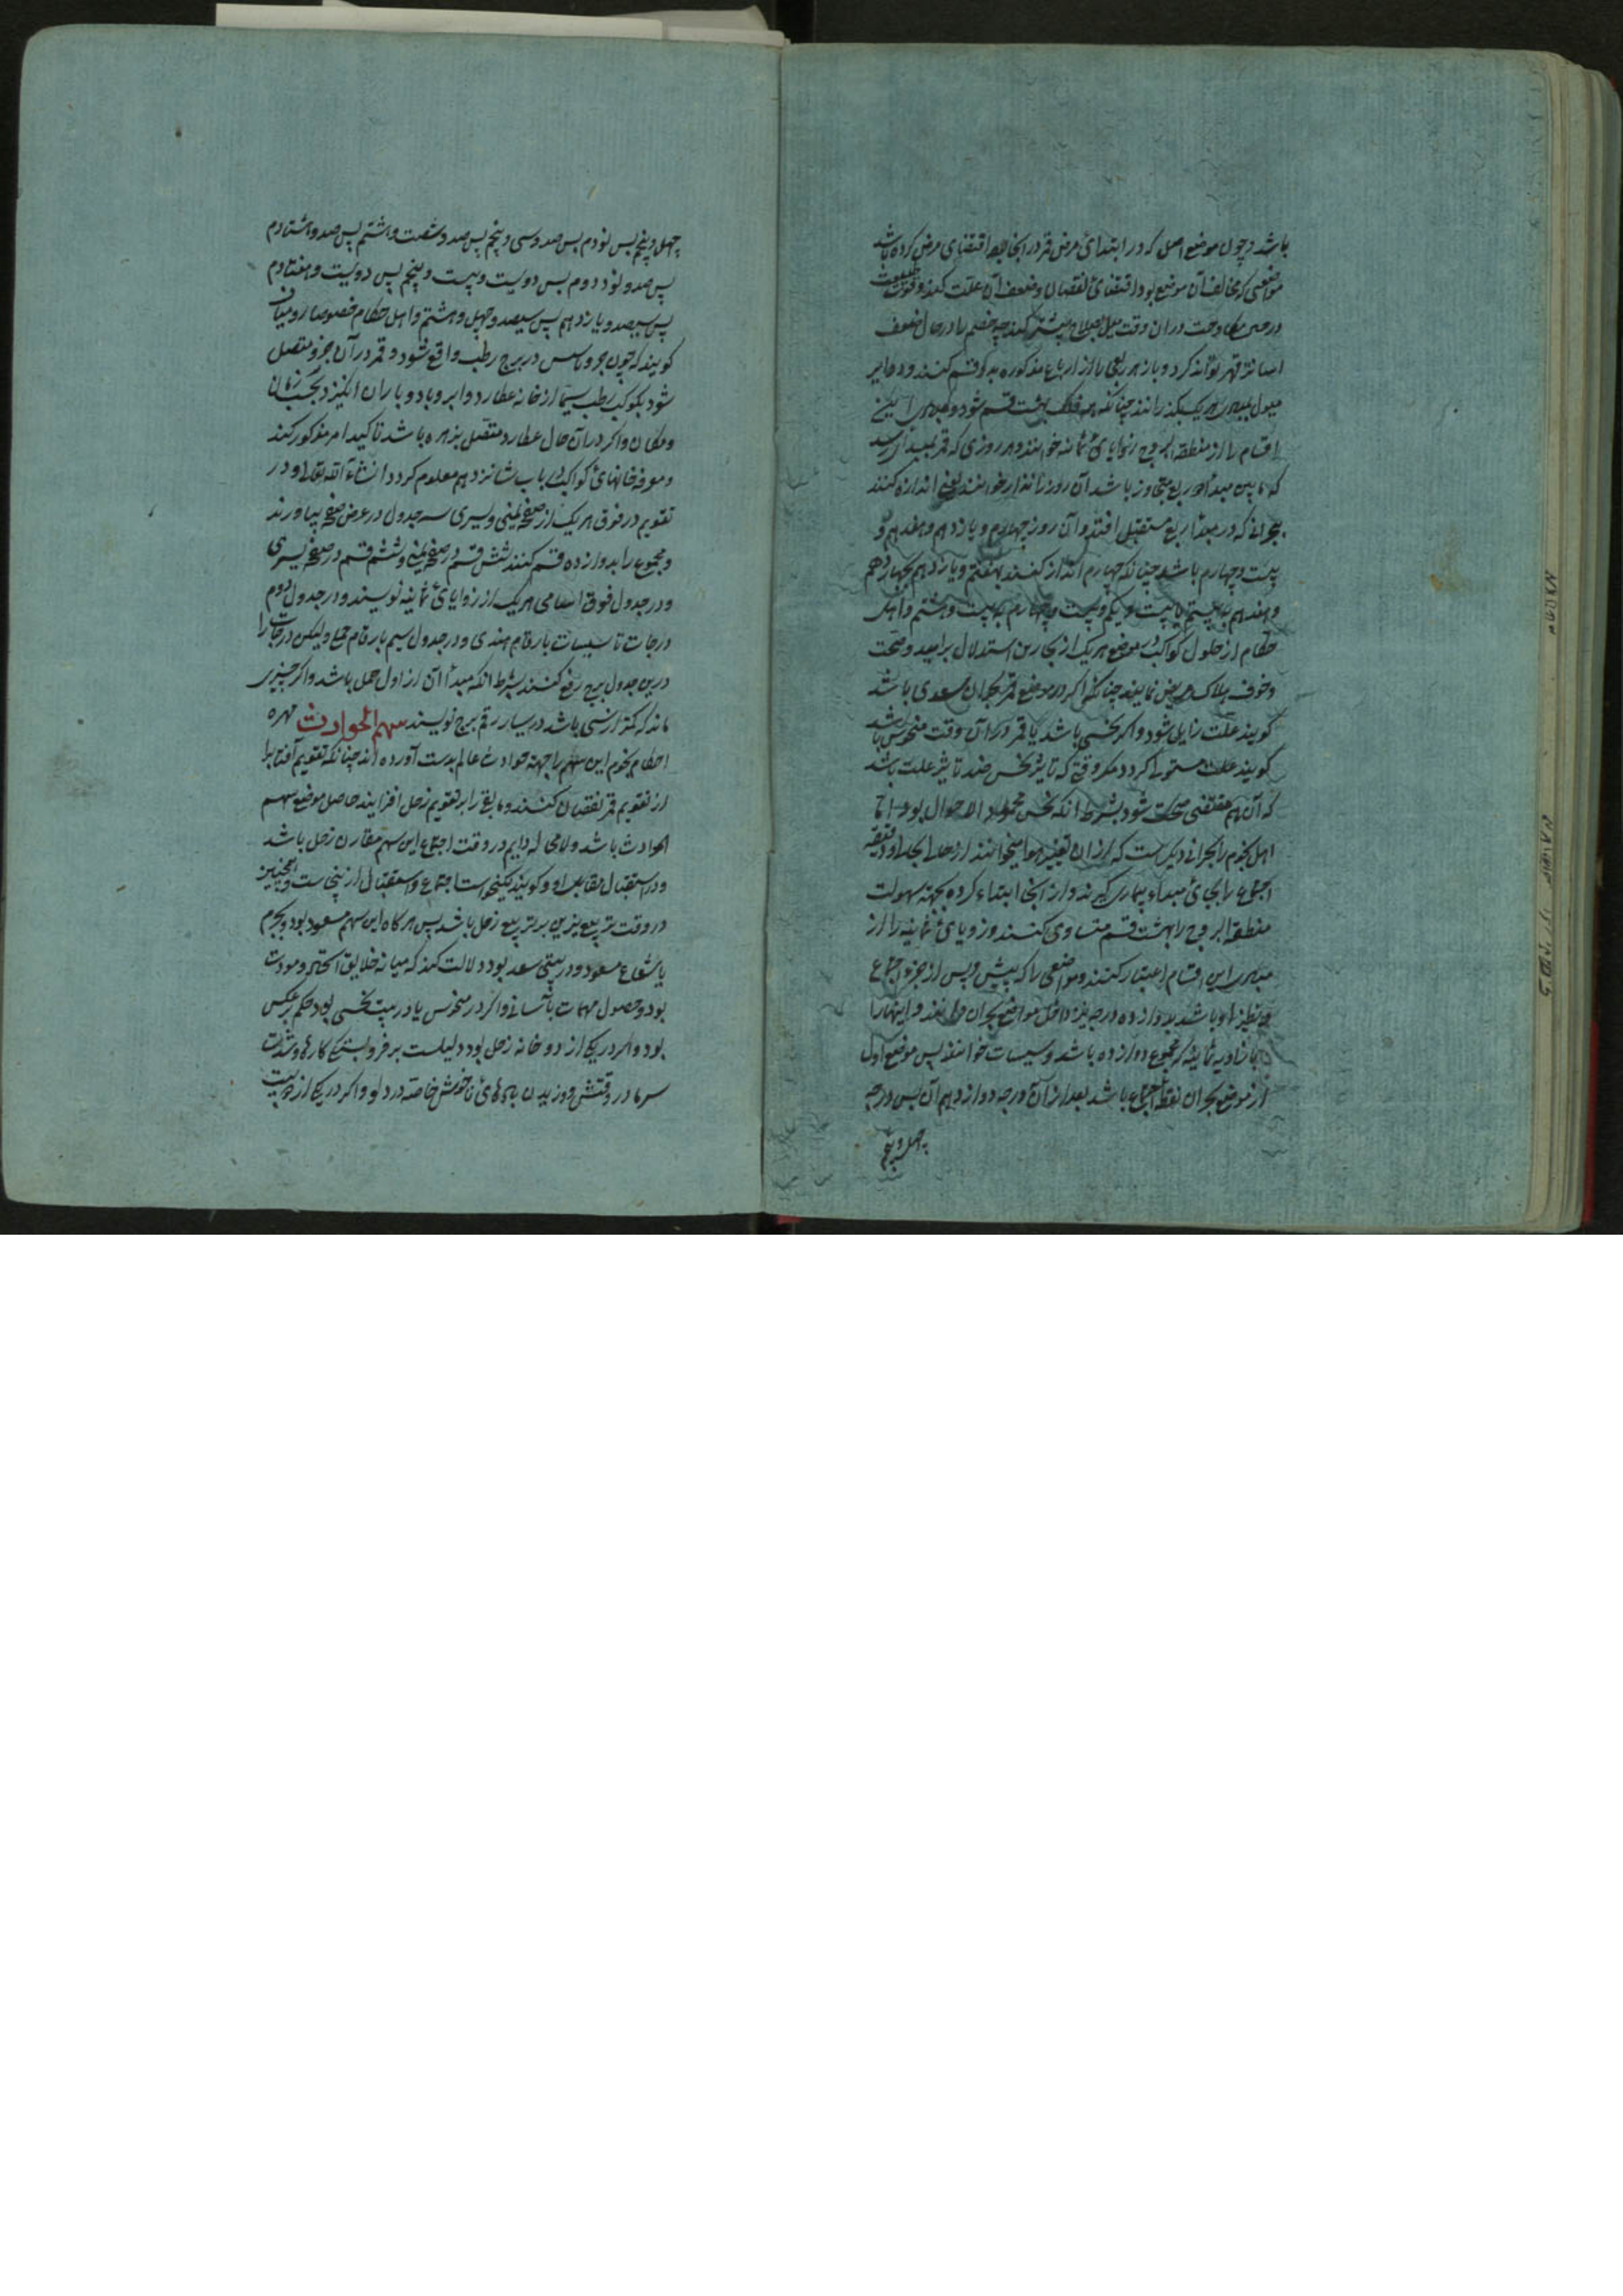 باشد و چون موضع اصل که در ابتدای مرض قمر در انجا بود اقتضای مرض کرده باشد
مواضعی که مخالف آن موضع بود اقتضای نقصان و ضعف آن علت کند و قوت طبیعت
در آن وقت میل بصلاح بیشتر کند چه خصم را در حال ضعف
اسانتر قهر تواند کرد و باز هر ربعی را از ارباع مذکوره بدو قسم کنند و دوایر
میول بمبادی هر یک بگذرانند چنانکه فلک بهشت قسم شود و مبادی این
اقسام را از منطقة البروج زوایای ثمانیه خوانند و هر روزی که قمر بمبدأ رسد
که مابین مبدأ دو ربع متجاوز باشد آن روز را انذار خوانند یعنی اندازه کنند
بحرانی که در مبدأ ربع مستقبل افتد و آن روز چهارم و یازدهم و هفدهم و
بیست و چهارم باشد چنانکه چهارم انذار کنند بهفتم و یازدهم بچهاردهم
و هفدهم به بیستم یا بیست و یکم و بیست و چهارم به بیست و هشتم و اهل
حکام از حلول کواکب بموضع هر یک از بحارین استدلال بر امید و صحت
و خوف هلاک مریض نمایند چنانکه اکر در موضع قمر بحران سعدی باشد
کویند علت زایل شود و اکر نحسی باشد یا قمر در آن وقت منحوس باشد
کویند علت مستولی کردد مکر وقتی که تاثیر نحس ضد تاثیر علت باشد
که آن هم مقتضی صحت شود بشرط انکه نحس محمود الاحوال بود اما
اهل نجوم را بحرانی دیکر است که از ان تغییر هوا میخوانند از جزء
اجتماع را بجای مبداء بیماری کیرند و از انجا ابتداء کرده بجهة سهولت
منطقة البروج را بهشت قسم متساوی کنند و زوایای ثمانیه را از
مبادی این اقسام اعتبار کنند و مواضعی را که پیش و پس از جزء اجتماع
و نظیر او باشد بدوازده درجه نیز داخل مواضع بحران دانند و اینها را
با زوایه ثمانیه که مجموع دوازده باشد تاسیسات خوانند پس موضع اول
از مواضع بحران نقطه اجتماع باشد بعد از آن درجه دوازدهم آن پس درجه
چهل و پنجم
چهل و پنجم پس نودم پس صد و سی و پنجم پس صد و شصت و هشتم پس صد و هشتادم
پس صد و نود دوم پس دویست و بیست و پنجم پس دویست و هفتادم
پس سیصد و یازدهم پس سیصد و چهل و هشتم و اهل حکام خصوصا رومیان
کویند که چون جزو تاسیس در برج رطب واقع شود و قمر در آن جزو متصل
شود بکوکب رطب سیما از خانه عطارد و ابر و باد و باران انکیزد بحسب زمان
و مکان و اکر در آن حال عطارد متصل بزهره باشد تاکید امر مذکور کند
و معرفه خانهای کواکب در باب شانزدهم معلوم کردد انشاء الله تعالی و در
تقویم در فوق هر یک از صفحه یمنی و یسری سه جدول در عرض صفحه بیاورند
و مجموع را بدوازده قسم کنند شش قسم در صفحه یمنی و شش قسم در صفحه یسری
و در جدول فوق اسامی هر یک از زوایای ثمانیه نویسند و در جدول دوم
درجات تاسیسات بارقام هندی و در جدول سیم بارقام جمل ولیکن درجات را
درین جدول برج رفع کنند بشرط انکه مبدأ آن از اول حمل باشد و اکر چیزی
ماند که کمتر از سی باشد در یسار رقم برج نویسند سهم الحوادث مهره
احکام نجوم این سهم را بجهة حوادث عالم بدست آورده اند چنانکه تقویم آفتاب را
از تقویم قمر نقصان کنند و باقی را بر تقویم زحل افزایند حاصل موضع سهم
الحوادث باشد و لامحاله دایم در وقت اجتماع این سهم مقارن زحل باشد
و در استقبال مقابل او و کویند نیکخواست اجتماع و استقبال ازینجاست و همچنین
در وقت تربیع نیرین بر تربیع زحل باشد پس هر کاه این سهم مسعود بود بجرم
یا شعاع مسعود و در بیتی سعد بود دلالت کند که میانه خلایق و مودت
بود و حصول مهمات بآسانی و اکر در منحوس یا در بیت نحسی بود حکم بر عکس
بود و اکر در یکی از دو خانه زحل بود دلیلست بر فروبستکی کارها و شدت
سرما در وقتش و وزیدن بادهای ناخوش خاصة در دلو و اکر در یکی از دو بیت